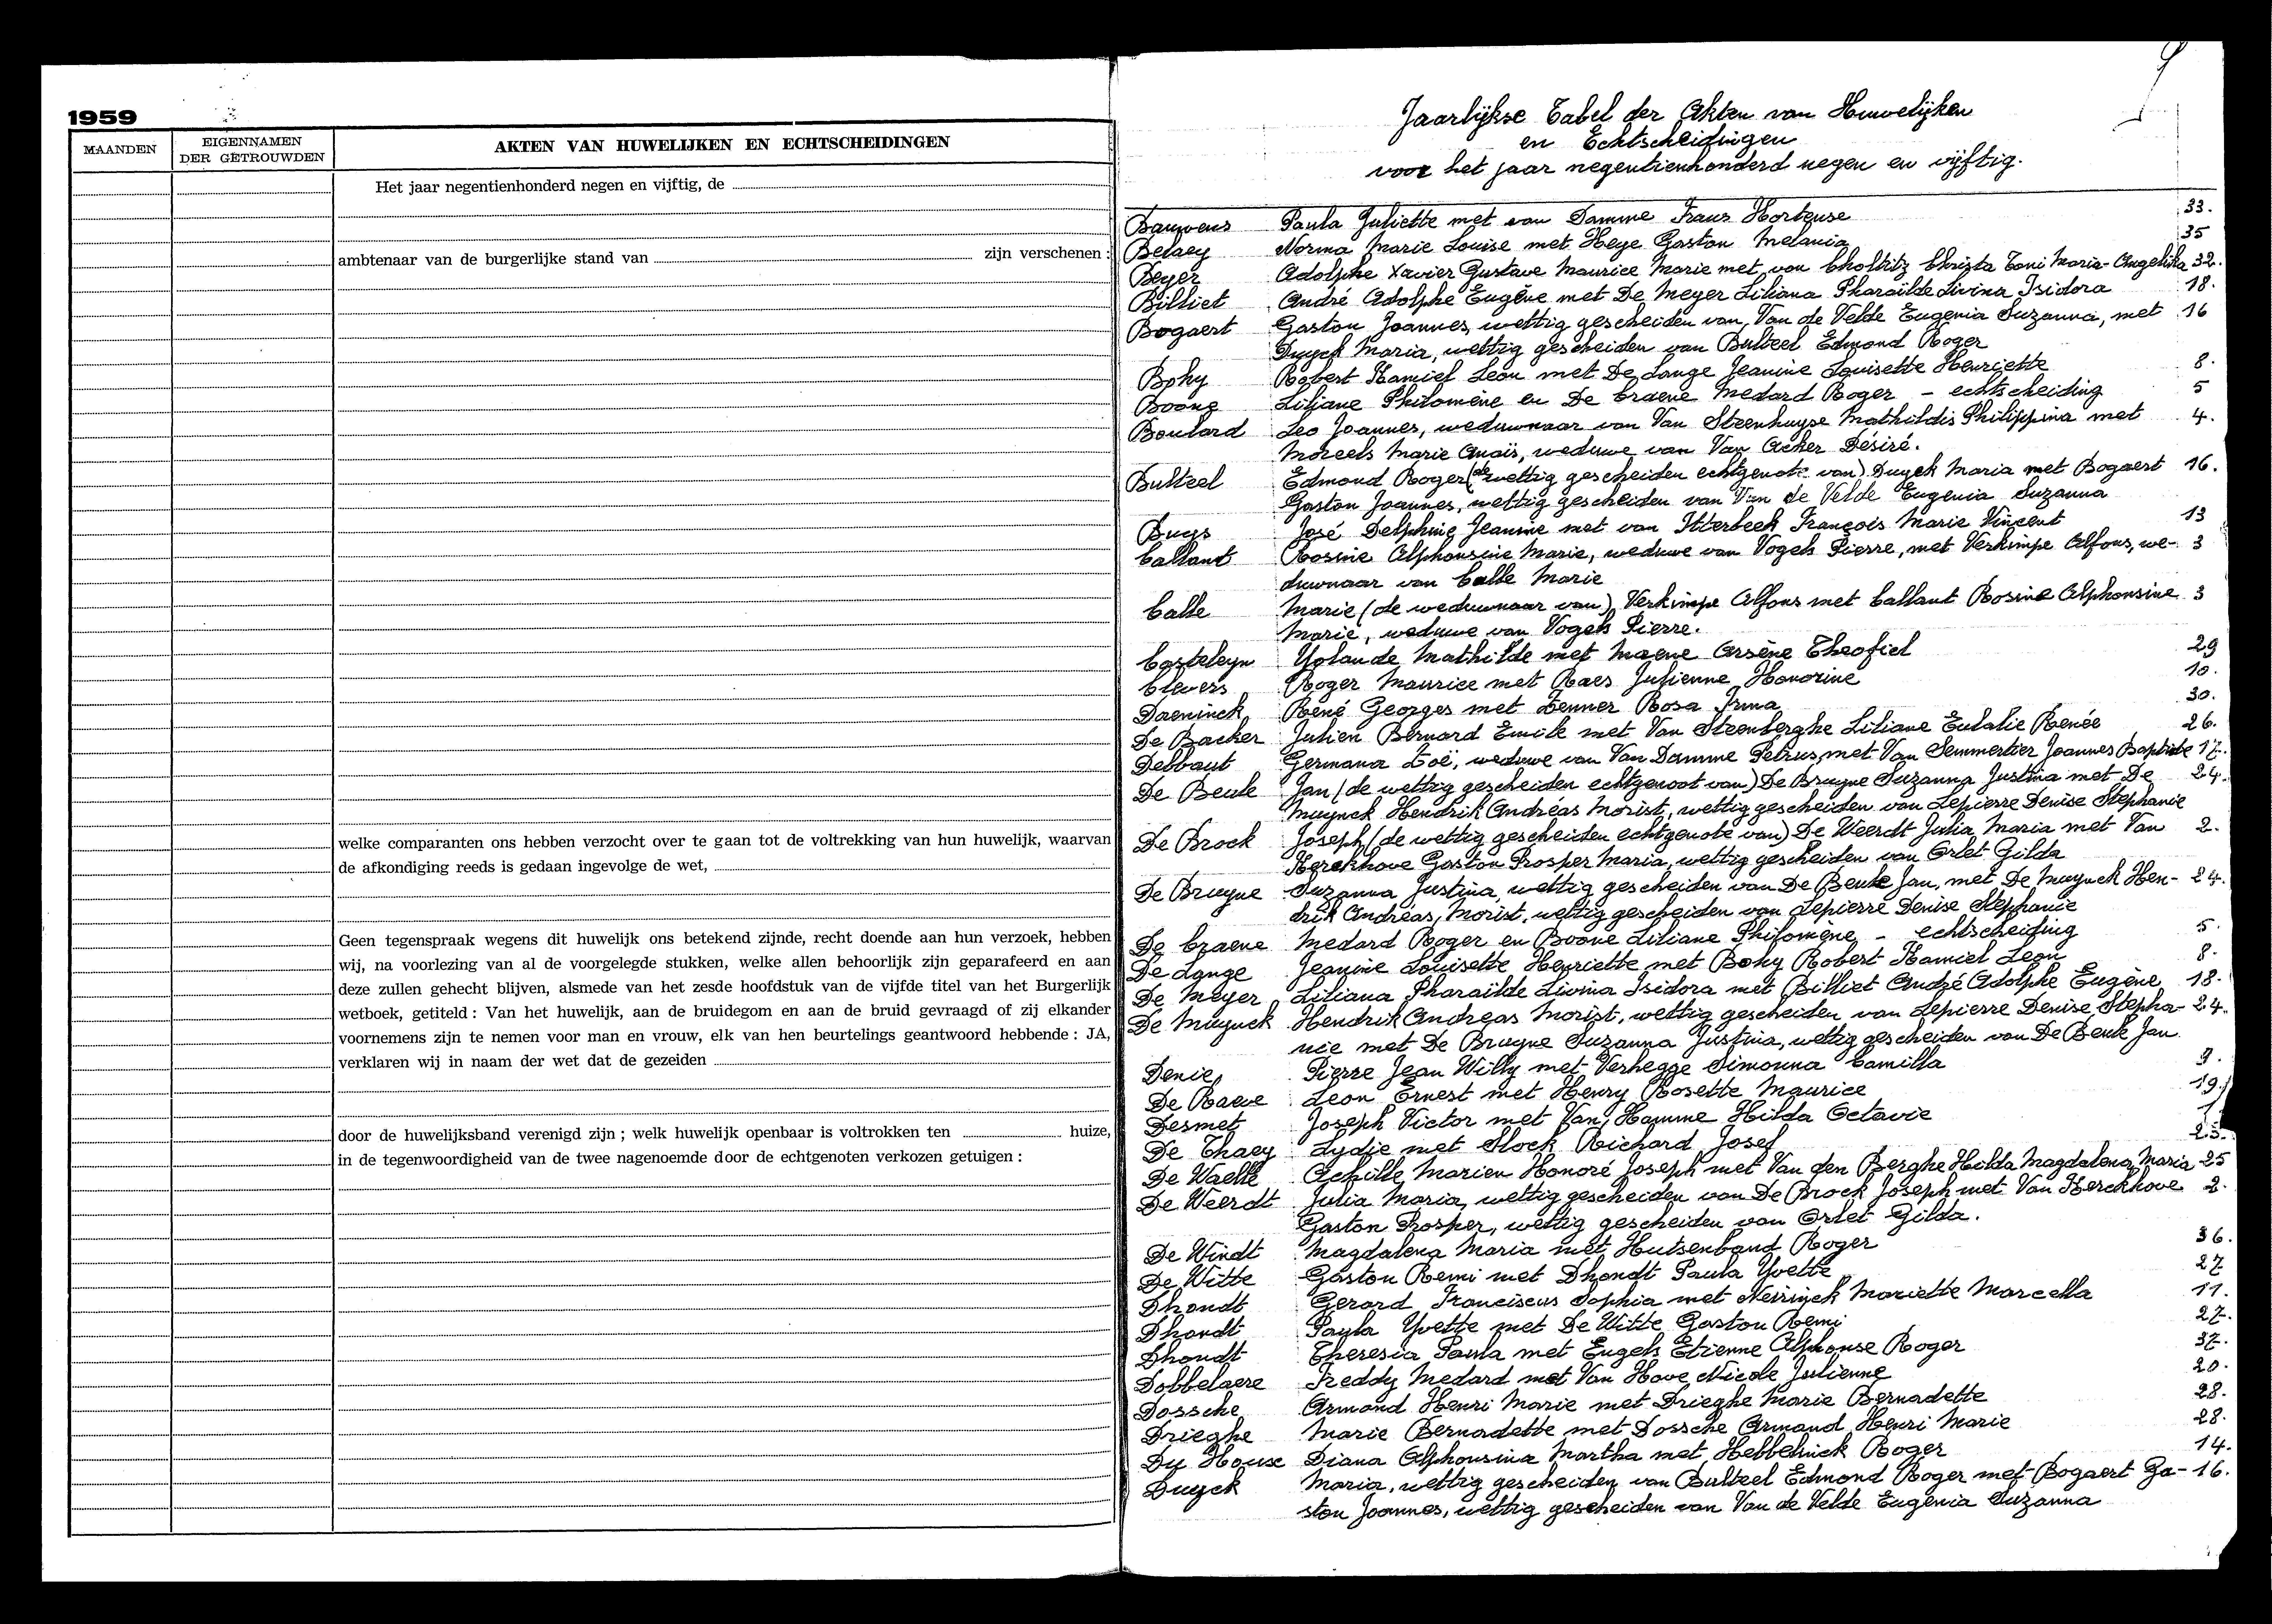 1959
MAANDEN
EIGENNAMEN
DER GETROUWDEN
AKTEN VAN HUWELIJKEN EN ECHTSCHEIDINGEN
Het jaar negentienhonderd negen en vijftig, de
ambtenaar van de burgerlijke stand van zijn verschenen :
welke comparanten ons hebben verzocht over te gaan tot de voltrekking van hun huwelijk, waarvan
de afkondiging reeds is gedaan ingevolge de wet,
Geen tegenspraak wegens dit huwelijk ons betekend zijnde, recht doende aan hun verzoek, hebben
wij, na voorlezing van al de voorgelegde stukken, welke allen behoorlijk zijn geparafeerd en aan
deze zullen gehecht blijven, alsmede van het zesde hoofdstuk van de vijfde titel van het Burgerlijk
wetboek, getiteld : Van het huwelijk, aan de bruidegom en aan de bruid gevraagd of zij elkander
voornemens zijn te nemen voor man en vrouw, elk van hen beurtelings geantwoord hebbende : JA,
verklaren wij in naam der wet dat de gezeiden
door de huwelijksband verenigd zijn ; welk huwelijk openbaar is voltrokken ten huize,
in de tegenwoordigheid van de twee nagenoemde door de echtgenoten verkozen getuigen :
Jaarlijkse Tabel der Akten van Huwelijken
en Echtscheidingen
voor het jaar negentienhonderd negen en vijftig.
Bauwens Paula Juliette met van Damme Frans Hortense 33.
Belaey Norma Marie Louise met Heye Gaston Melania 35
Beyer Adolphe Xavier Gustave Maurice Marie met von Choltitz Christa Toni Maria-Angelika 32.
Billiet André Adolphe Eugène met De Meyer Liliana Pharaïlde Livina Isidora 18.
Bogaert Gaston Joannes, wettig gescheiden van Van de Velde Eugenia Suzanna, met 16
Duyck Maria, wettig gescheiden van Bulteel Edmond Roger
Bohy Robert Kamiel Leon met De Lange Jeanine Louisette Henriette 8.
Boone Liliane Philomène en De Craene Medard Roger - echtscheiding 5
Boulard Leo Joannes, weduwnaar van Van Steenhuyse Mathildis Philippina met 4.
Moreels Marie Anaïs, weduwe van Van Acker Désiré.
Bulteel Edmond Roger (de wettig gescheiden echtgenote van) Duyck Maria met Bogaert 16.
Gaston Joannes, wettig gescheiden van Van de Velde Eugenia Suzanna
Buys José Delphine Jeanine met van Itterbeek François Marie Vincent 13
Callant Rosine Alphonsine Marie, weduwe van Vogels Pierre, met Verkimpe Alfons, we- 3
duwnaar van Calle Marie
Calle Marie (de weduwnaar van) Verkimpe Alfons met Callant Rosine Alphonsine 3
Marie, weduwe van Vogels Pierre.
Casteleyn Yolande Mathilde met Maene Arsène Theofiel 29
Clevers Roger Maurice met Raes Julienne Honorine 10.
Daeninck René Georges met Zenner Rosa Irma 30.
De Backer Julien Bernard Emile met Van Steenberghe Liliane Eulalie Renée 26.
Debbaut Germana Zoë, weduwe van Van Damme Petrus, met Van Semmertier Joannes Baptiste 17.
De Beule Jan (de wettig gescheiden echtgenoot van) De Bruyne Suzanna Justina met De 24.
Muynck Hendrik Andréas Morist, wettig gescheiden van Lepierre Denise Stephanie
De Brock Joseph (de wettig gescheiden echtgenote van) De Weerdt Julia Maria met Van 2.
Kerckhove Gaston Prosper Maria, wettig gescheiden van Orlet Gilda
De Bruyne Suzanna Justina, wettig gescheiden van De Beule Jan, met De Muynck Hen- 24.
drik Andréas, Morist, wettig gescheiden van Lepierre Denise Stephanie
De Craene Medard Roger en Boone Liliane Philomène - echtscheiding 5.
De Lange Jeanine Louisette Henriette met Bohy Robert Kamiel Leon 8.
De Meyer Liliana Pharaïlde Livina Isidora met Billiet André Adolphe Eugène 18.
De Muynck Hendrik Andreas Morist, wettig gescheiden van Lepierre Denise Stepha- 24.
nie met De Bruyne Suzanna Justina, wettig gescheiden van De Beule Jan
Denie Pierre Jean Willy met Verhegge Simonna Camilla 9.
De Raeve Leon Ernest met Henry Rosette Maurice 19
Desmet Joseph Victor met Van Hamme Hilda Octavie 1.
De Thaey Lydie met Stock Richard Josef 23.
De Waelle Achille Marien Honoré Joseph met Van den Berghe Hilda Magdalena Maria 25
De Weerdt Julia Maria, wettig gescheiden van De Brock Joseph met Van Kerckhove 2.
Gaston Prosper, wettig gescheiden van Orlet Gilda.
De Windt Magdalena Maria met Hutsenband Roger 36.
De Witte Gaston Remi met Dhondt Paula Yvette 27
Dhondt Gerard Franciscus Sophia met Neirinck Mariette Marcella 11.
Dhondt Paula Yvette met De Witte Gaston Remi 27.
Dhondt Theresia Paula met Engels Etienne Alphonse Roger 37.
Dobbelaere Freddy Medard met Van Hove Nicole Julienne 20.
Dossche Armand Henri Marie met Drieghe Marie Bernadette 28.
Drieghe Marie Bernadette met Dossche Armand Henri Marie 28.
Du House Diana Alphonsina Martha met Hebbelinck Roger 14.
Duyck Maria, wettig gescheiden van Bulteel Edmond Roger met Bogaert Ga- 16.
ston Joannes, wettig gescheiden van Van de Velde Eugenia Suzanna